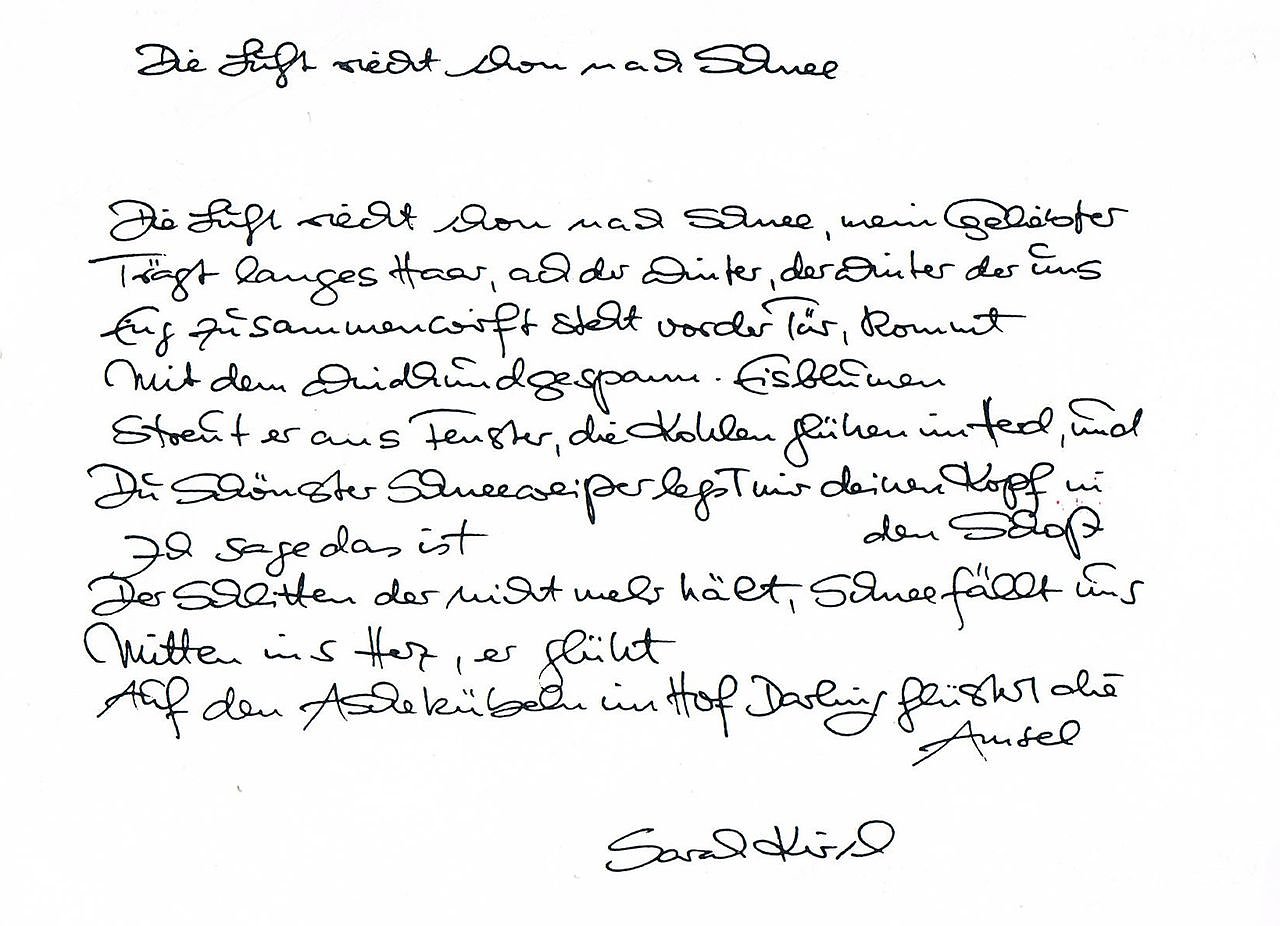 Die Luft riecht schon nach Schnee
Die Luft riecht schon nach Schnee, mein Geliebter
Trägt langes Haar, ach der Winter, der Winter der uns
Eng zusammenwirft steht vor der Tür, kommt
Mit dem Windhundgespann. Eisblumen
Streut er ans Fenster, die Kohlen glühen im Herd, und
Du Schönster Schneeweißer legst mir deinen Kopf in
den Schoß
Ich sage das ist
Der Schlitten der nicht mehr hält, Schnee fällt uns
Mitten ins Herz, er glüht
Auf den Aschekübeln im Hof Darling flüstert die
Amsel
Sarah Kirsch